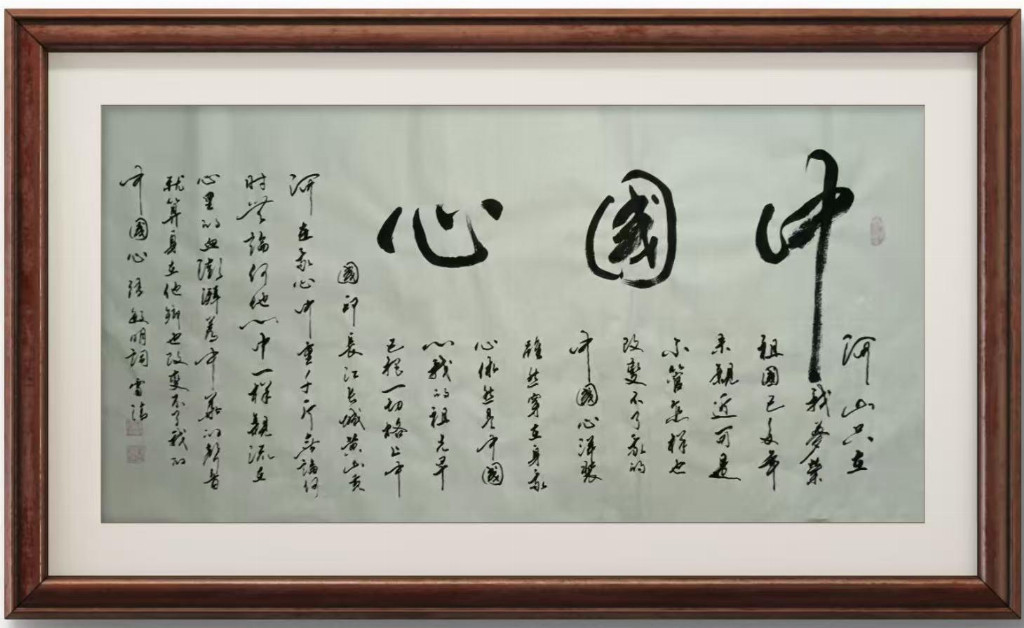 中國心
河山只在
我夢縈
祖国已多年
未親近可是
不管怎样也
改變不了我的
中國心洋裝
雖然穿在身我
心依然是中國
心我的祖先早
已把一切烙上中
國印長江長城黄山黄
河在我心中重千斤無論何
時無論何地心中一样親流在
心里的血澎湃着中華的聲音
就算身在他鄉也改變不了我的
中國心張敏明詞雪